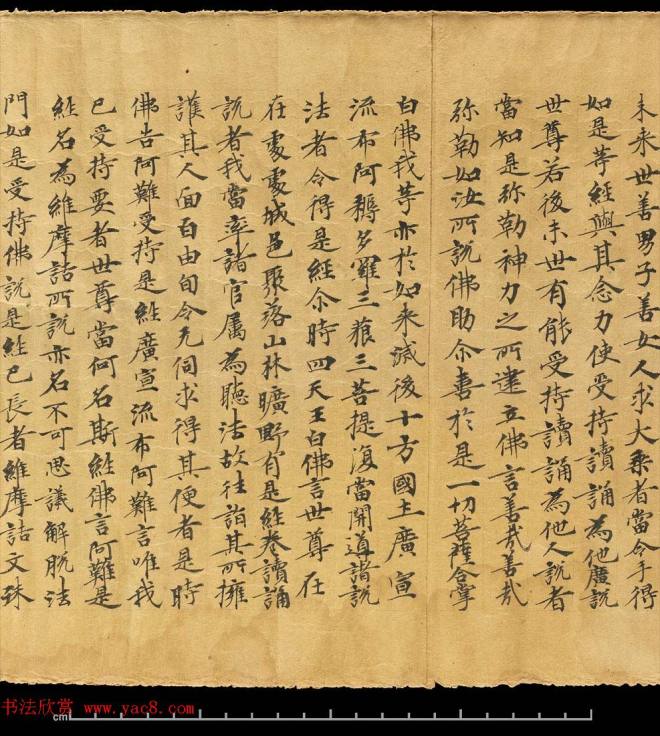 未来世善男子善女人求大乘者當令手得
如是等經與其念力使受持讀誦為他廣說
世尊若後末世有能受持讀誦為他人說者
當知是弥勒神力之所建立佛言善哉善哉
弥勒如汝所說佛助尒喜於是一切菩薩合掌
白佛我等亦於如来滅後十方國土廣宣
流布阿耨多羅三藐三菩提復當開導諸說
法者令得是經尒時四天王白佛言世尊在
在處處城邑聚落山林曠野有是經卷讀誦
說者我當率諸官属為聽法故往詣其所擁
護其人面百由旬令无伺求得其便者是時
佛告阿難受持是經廣宣流布阿難言唯我
已受持要者世尊當何名斯經佛言阿難是
經名為維摩詰所說亦名不可思議解脫法
門如是受持佛說是經已長者維摩詰文殊
书法欣赏 www.yac8.com
cm